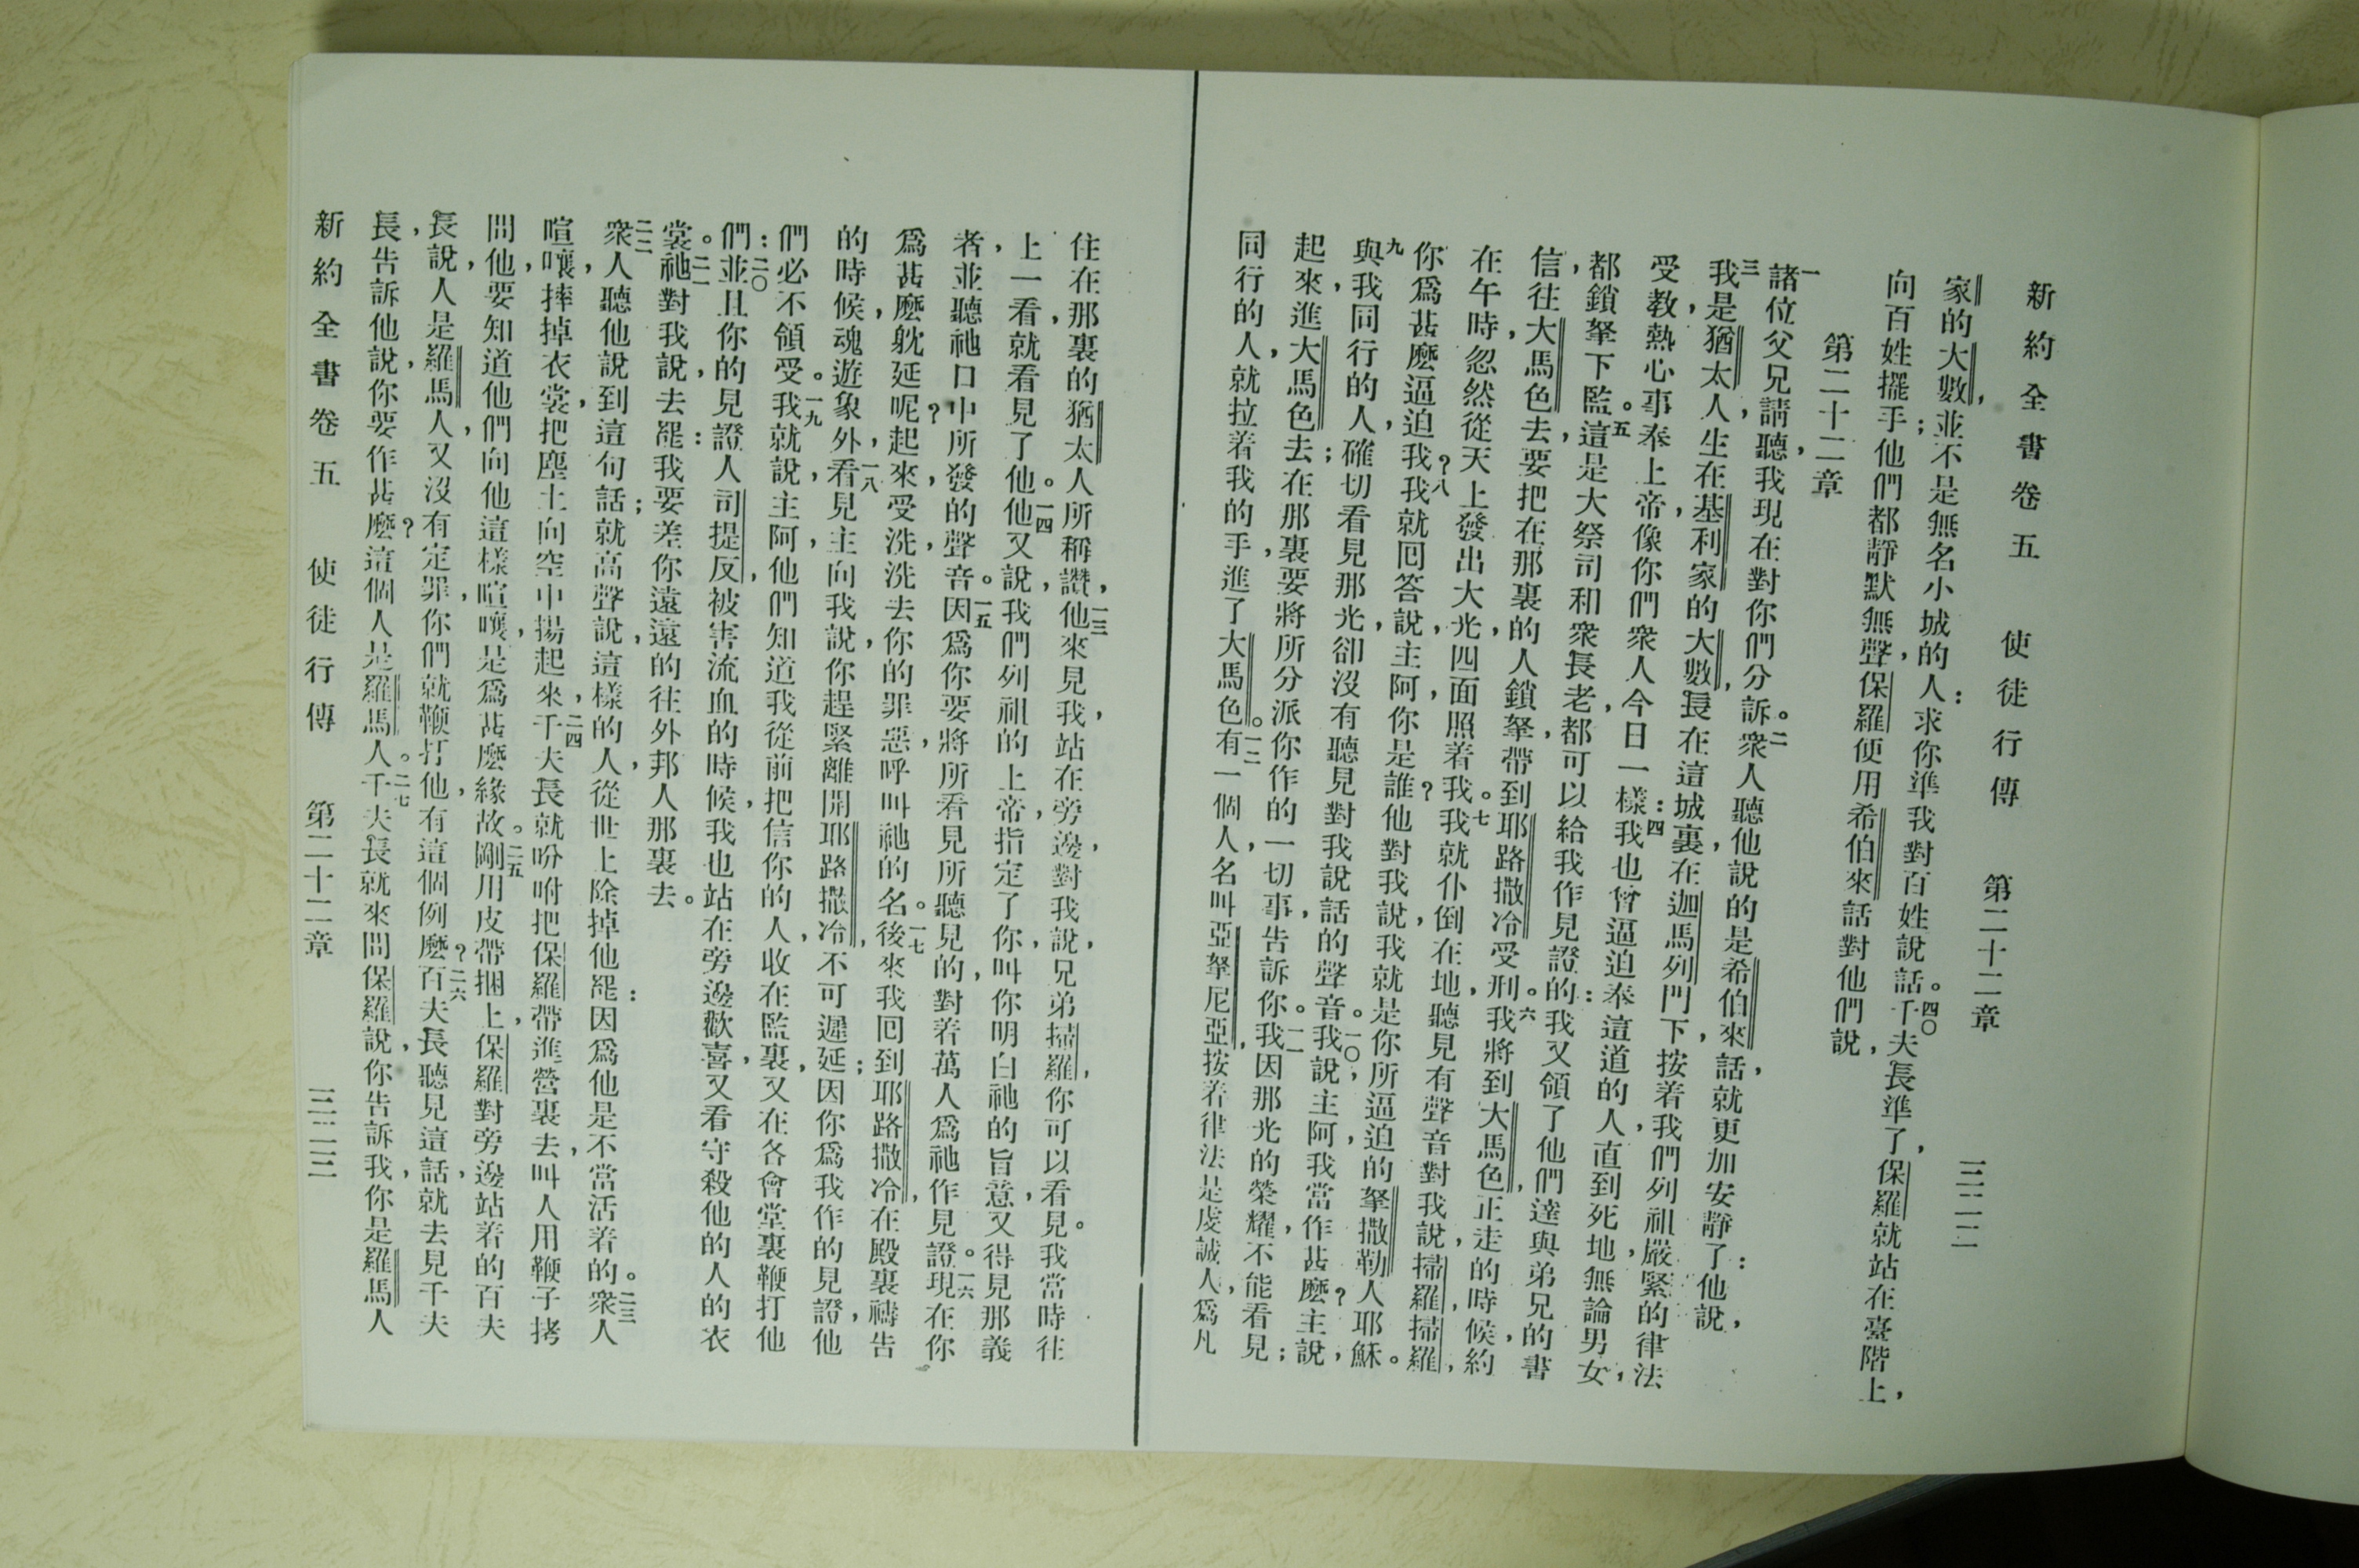 新約全書卷五 使徒行傳 第二十二章 三二二
家的大數，並不是無名小城的人：求你準我對百姓說話。四〇千夫長準了，保羅就站在臺階上，
向百姓擺手；他們都靜默無聲，保羅便用希伯來話對他們說，
第二十二章
一諸位父兄請聽，我現在對你們分訴。二衆人聽他說的是希伯來話，就更加安靜了：他說，
三我是猶太人，生在基利家的大數，長在這城裏，在迦馬列門下，按着我們列祖嚴緊的律法
受教，熱心事奉上帝，像你們衆人今日一樣：四我也曾逼迫奉這道的人，直到死地，無論男女，
都鎖拏下監。五這是大祭司和衆長老，都可以給我作見證的：我又領了他們達與弟兄的書
信，往大馬色去，要把在那裏的人鎖拏，帶到耶路撒冷受刑。六我將到大馬色，正走的時候，約
在午時，忽然從天上發出大光，四面照着我。七我就仆倒在地，聽見有聲音對我說，掃羅，掃羅，
你爲甚麼逼迫我？八我就回答說，主阿，你是誰？他對我說，我就是你所逼迫的拏撒勒人耶穌。
九與我同行的人，確切看見那光，卻沒有聽見對我說話的聲音。一〇我說，主阿，我當作甚麼？主說，
起來，進大馬色去；在那裏要將所分派你作的一切事，告訴你。一一我因那光的榮耀，不能看見；
同行的人，就拉着我的手，進了大馬色。一二有一個人，名叫亞拏尼亞，按着律法是虔誠人，爲凡
住在那裏的猶太人所稱讚，一三他來見我，站在旁邊，對我說，兄弟掃羅，你可以看見。我當時往
上一看，就看見了他。一四他又說，我們列祖的上帝，指定了你，叫你明白祂的旨意，又得見那義
者，並聽祂口中所發的聲音。一五因爲你要將所看見所聽見的，對着萬人爲祂作見證。一六現在你
爲甚麼躭延呢？起來，受洗，洗去你的罪惡，呼叫祂的名。一七後來我回到耶路撒冷，在殿裏禱告
的時候，魂遊象外，一八看見主向我說，你趕緊離開耶路撒冷，不可遲延；因你爲我作的見證，他
們必不領受。一九我就說，主阿，他們知道我從前把信你的人，收在監裏，又在各會堂裏鞭打他
們：二〇並且你的見證人司提反，被害流血的時候，我也站在旁邊歡喜，又看守殺他的人的衣
裳。二一祂對我說，去罷：我要差你遠遠的往外邦人那裏去。
二二衆人聽他說到這句話；就高聲說，這樣的人，從世上除掉他罷：因爲他是不當活着的。二三衆人
喧嚷，摔掉衣裳，把塵土向空中揚起來，二四千夫長就吩咐把保羅帶進營裏去，叫人用鞭子拷
問他，要知道他們向他這樣喧嚷，是爲甚麼緣故。二五剛用皮帶捆上，保羅對旁邊站着的百夫
長說，人是羅馬人，又沒有定罪，你們就鞭打他，有這個例麼？二六百夫長聽見這話，就去見千夫
長，告訴他說，你要作甚麼？這個人是羅馬人。二七千夫長就來問保羅說，你告訴我，你是羅馬人
新約全書卷五 使徒行傳 第二十二章 三二三